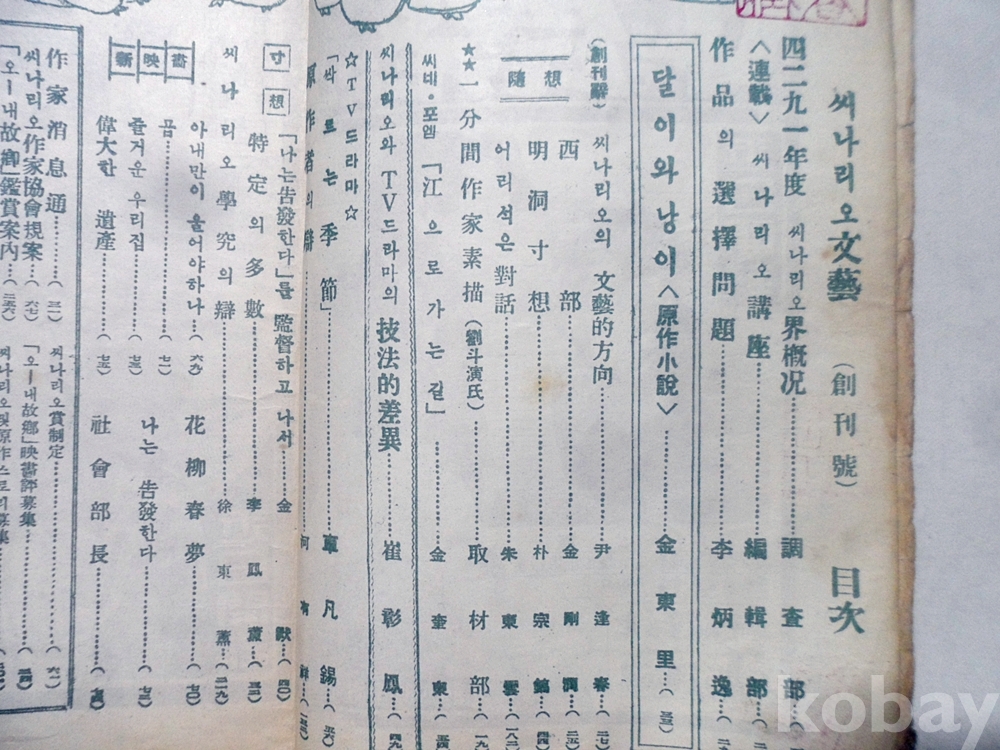 씨나리오文藝 (創刊號) 目次
四二九一年度 씨나리오界概況…調査部
<連載> 씨나리오講座…編輯部
作品의 選擇問題…李炳逸
달이와 낭이<原作小說>…金東里…(三三)
(創刊辭) 씨나리오의 文藝的方向…尹逢春…(二七)
隨想
西部…金剛潤…(二五)
明洞寸想…朴宗鎬…(四)
어리석은 對話…朱東雲…(八二)
★★一分間作家素描(劉斗演氏)…取材部…(一九)
씨네・포엠 「江으로가는길」…金奎東…(五四)
씨나리오와 TV드라마의 技法的差異…崔彰鳳…(四九)
☆TV드라마☆
「싹트는季節」…車凡錫…(五六)
原作者의 辯…河有祥
寸想
「나는告發한다」를 監督하고 나서…金默…(四〇)
特定의 多數…李鳳薰
씨나리오學究의 辯…徐東薰…(二九)
新映畵
아내만이 울어야하나…(六八)
곰…(七一)
즐거운 우리집…(七三)
偉大한 遺產…(七五)
花柳春夢…(七〇)
나는 告發한다…(七三)
社會部長…(七五)
作家消息通…(三一)
씨나리오作家協會規案…(六七)
「오ー내故鄕」鑑賞案內…(三六)
씨나리오賞制定…(六一)
「오ー내故鄕」映畵評募集…(三四)
kobay